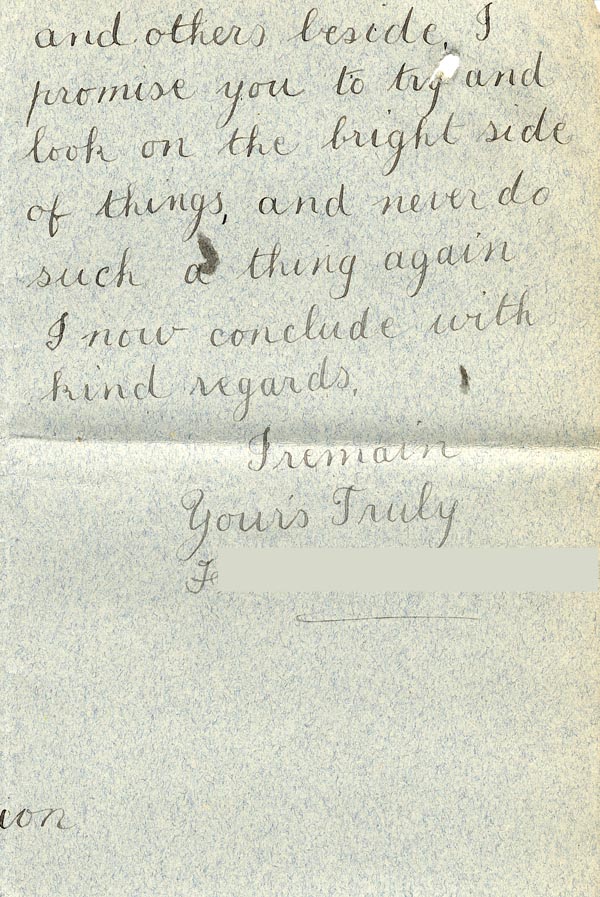 and others beside, I
promise you to try and
look on the bright side
of things, and never do
such a thing again
I now conclude with
kind regards,
I remain
Your's Truly
Fe
ion